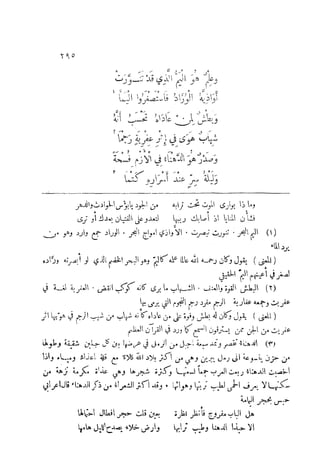 ٢٩٥
وعلم هو اليم الذي قد تنورت
أواذيه الوراد فاستصغروا اليما ١
وبطش لمن عاداه تحسب أنه
شهاب هوى في إثر عفرية رجما ٢
وصدر هو الدهناء في الأزم فسحة
وليلة سر عند أسراره كتما ٣
وماذا يوارى الموت تحت ترابه من الجود يا بؤس الحوادث والدهر
فشأن المنايا اذ أصابك ريبها لتعدو على الفتيان بعدك أو ترى
(١) اليم البحر . تنورت تبصرت . الأواذي امواج البحر . الوراد جمع وارد وهو من
يرد الماء
(المعنى) يقول وكان رحمه الله علمه كاليم وهو البحر الخضم الذي لو أبصرته وراده
لصغر في أعينهم اليم الحقيقي
(٢) البطش القوة والعنف . الشهاب ما يرى كأنه كوكب انقض . العفرية لغة في
عفريت وجمعه عفارية الرجم مفرد رجوم النجوم التي يرمى بها
(المعنى) يقول وكان له بطش وقوة على من عاداه كأنه شهاب من شهب الرجم في هويها اثر
عفريت من الجن ممن يسترقون السمع كما ورد في القرآن العظيم
(٣) الدهناء تقصر وتمد سبعة أجبل من الرمل في عرضها بين كل جبلين شقيقة وطولها
من حزن ينسوعة الى رمل يبرين وهي من أكثر بلاد الله كلأ مع قلة أعذاء ومياه واذا
أخصبت الدهناء ربعت العرب جمعاً لسعتها وكثرة شجرها وهي عذاة مكرمة نزهة من
سكنها لا يعرف الحمى لطيب تربتها وهوائها . وقد أكثر الشعراء من ذكر الدهناء . قال اعرابي
حبس بحجر اليمامة
هل الباب مفروج فأنظر نظرة بعين قلت حجر فطال احتمالها
ألا حبذا الدهنا وطيب ترابها وارض خلاء يصدح الليل هامها